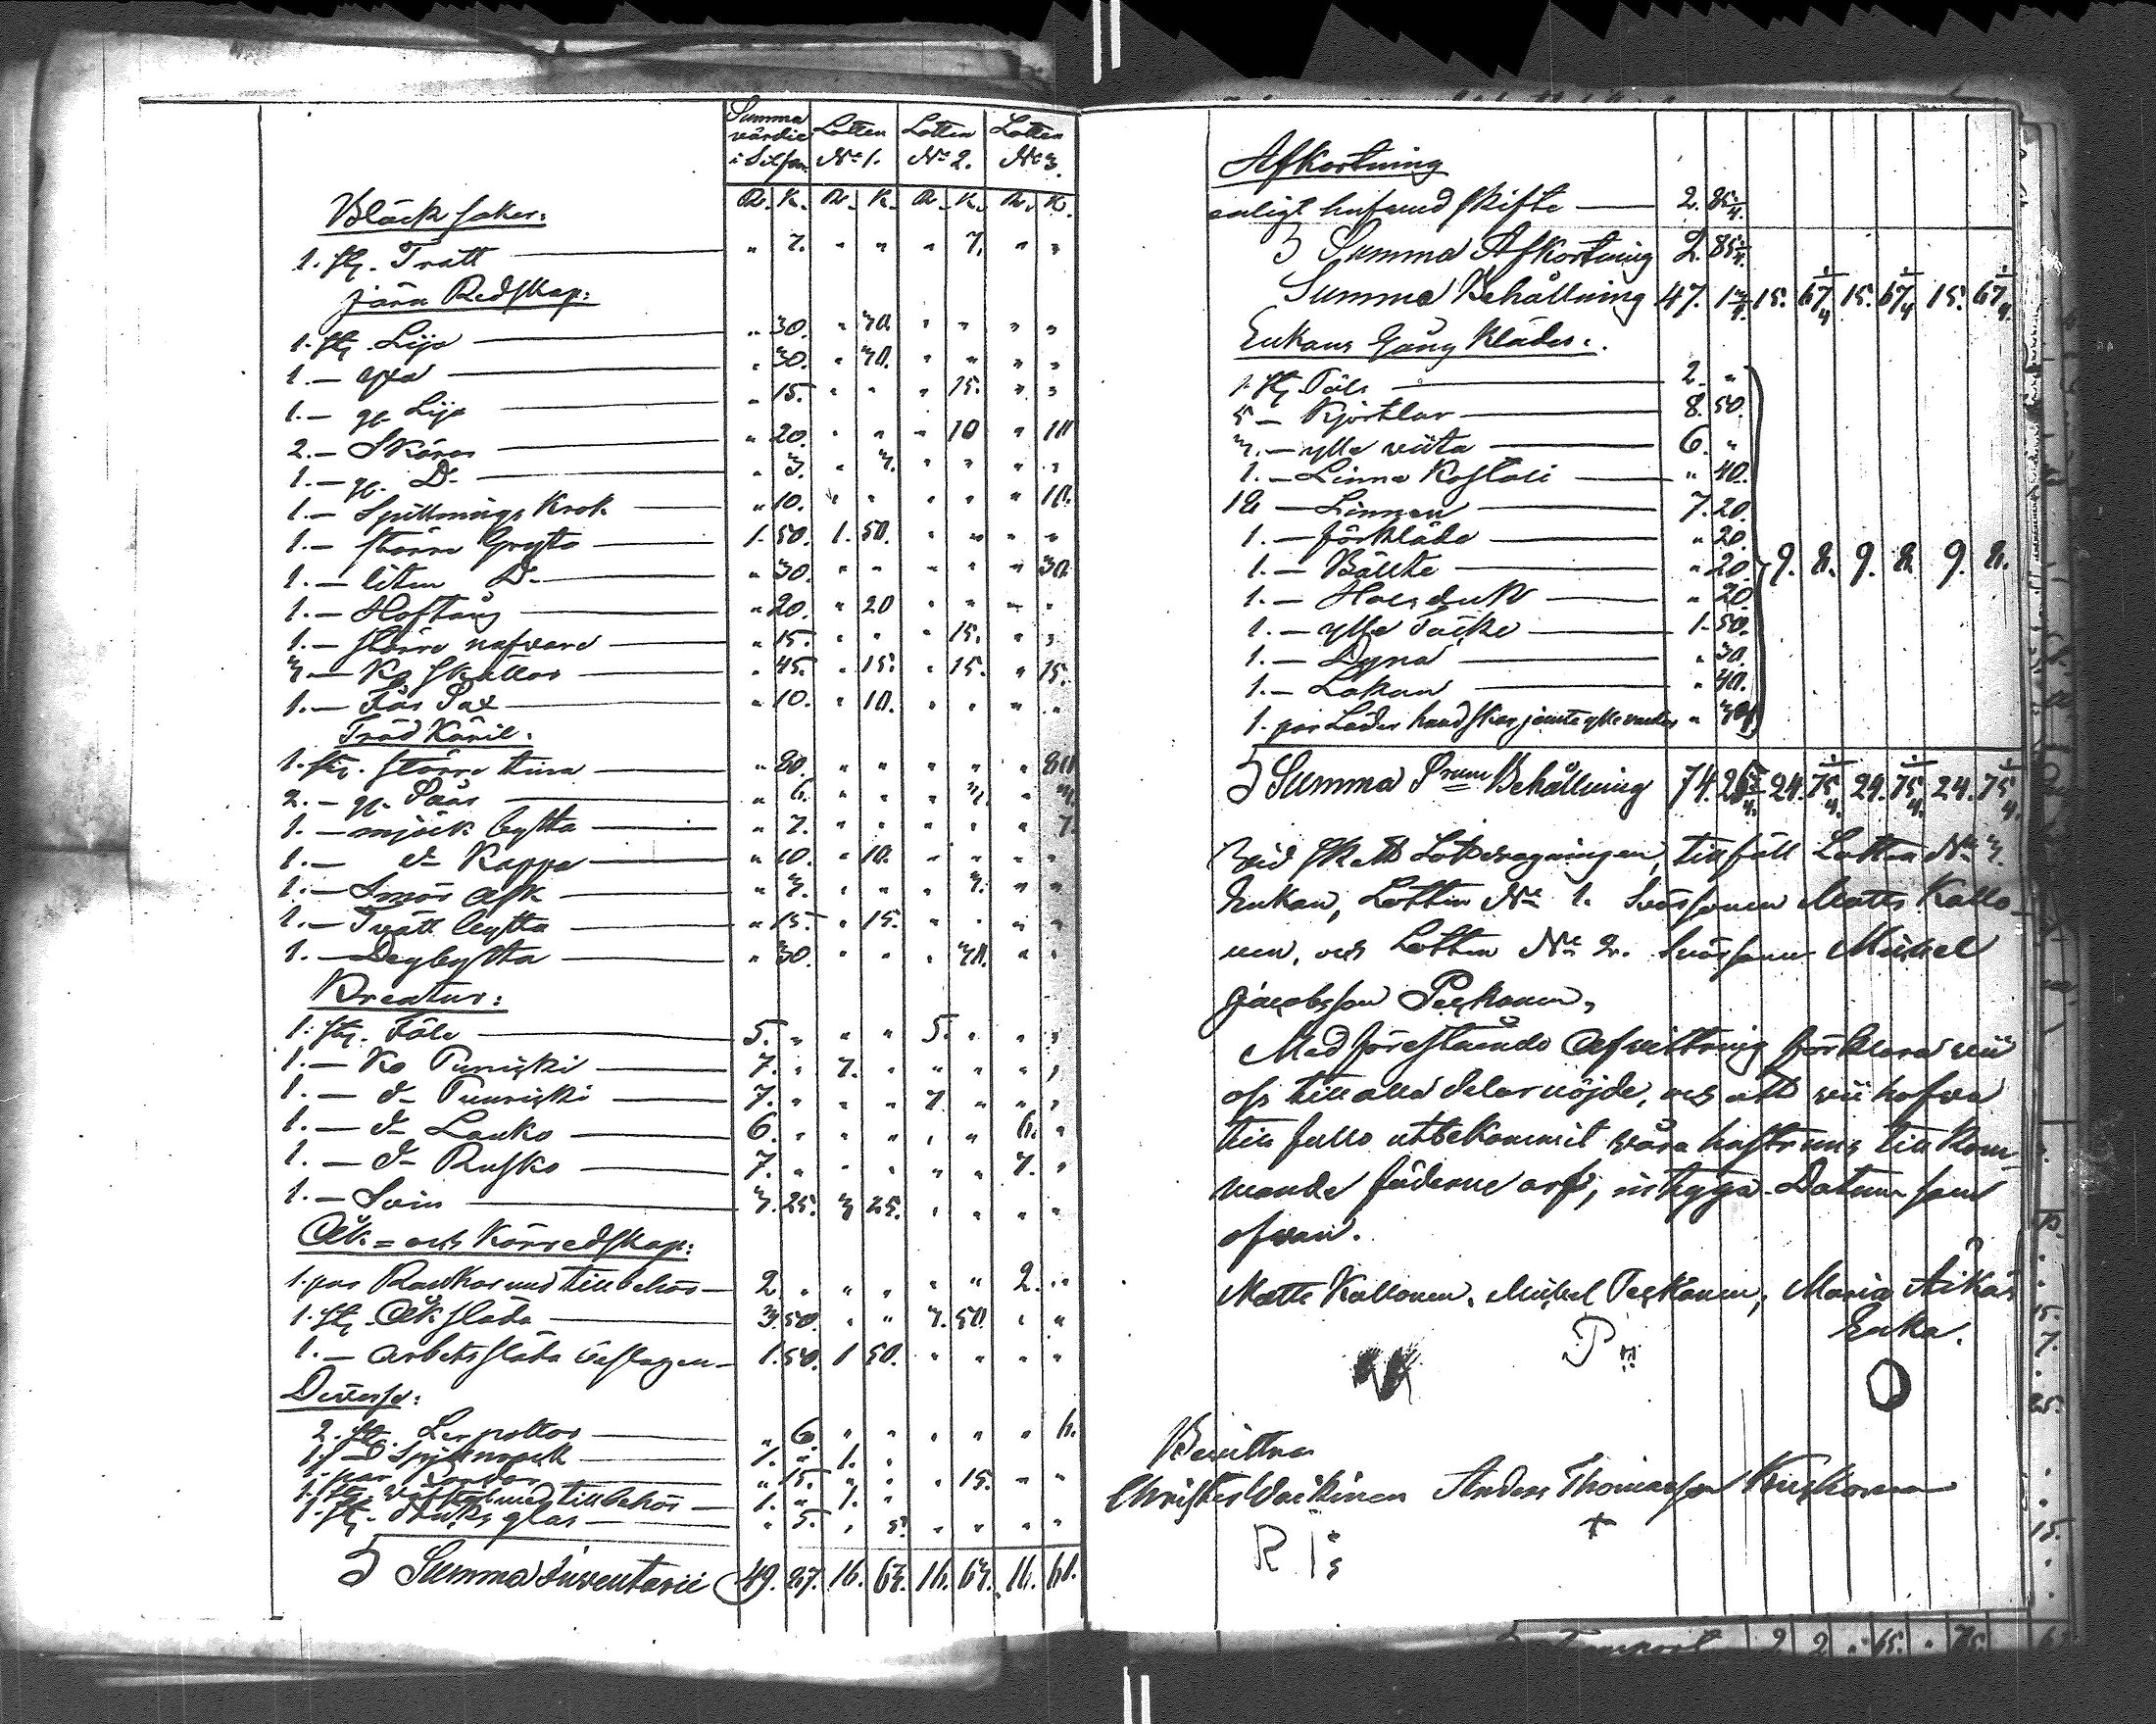 Summa värdie i Silfver Lotten No 1. Lotten No 2. Lotten No 3.
R. K. R. K. R. K. R. K.
Bläck saker:
1. st. Tratt " 7. " " " 7. " "
järn Redskap:
1. st. Lija " 30. " 30. " " " "
1. — yxa " 30. " 30. " " " "
1. — gl. Lija " 15. " " " 15. " "
2. — Skäror " 20. " " " 10 " 10
1. — gl. D— " 3. " 3. " " " "
1. — Krok " 10. " " " " " 10.
1. — större Gryta 1. 50. 1. 50. " " " "
1. — liten D— " 30. " " " " " 30.
1. — Hoftång " 20. " 20 " " " "
1. — större nafvare " 15. " " " 15. " "
3 — Ko Skällor " 45. " 15. " 15. " 15.
1. — Får Sax " 10. " 10. " " " "
Träd Käril:
1. st. större tina " 80. " " " " " 80
2. — gl. Såår " 6. " " " 3. " 3.
1. — mjölk bytta " 7. " " " " " 7.
1. — d— Kappa " 10. " 10. " " " "
1. — Smör Ask " 3. " " " 3. " "
1. — Tvätt bytta " 15. " 15. " " " "
1. — Degbytta " 30. " " " 30. " "
Kreatur:
1. st. Föle 5. " " " 5. " " "
1. — Ko 7. " 7. " " " " "
1. — d— 7. " " " 7 " " "
1. — d— Lauko 6. " " " " " 6. "
1. — d— Rusko 7. " " " " " 7. "
1. — Svin 3. 25. 3 25. " " " "
Åk- och Körredskap:
1. par med tillbehör 2. " " " " " 2. "
1. st. Åk släda 3. 50. " " 3. 50. " "
1. — arbetssläda 1. 50. 1 50. " " " "
Diverse:
2. st. Ler pottor " 6. " " " " " 6.
1. 1. " 1. "
1. par " 15. " " " 15. " "
1. st. med tillbehör 1. " 1. "
1. st. glas " 5. " 5. " " " "
Summa Inventarii 49. 87. 16. 63. 16. 63. 16. 61.
Afkortning
enligt hufvud skifte 2. 85 3/4.
Summa Afkortning 2. 85 3/4.
Summa Behållning 47. 1 1/4. 15. 67 1/4 15. 67 1/4 15. 67 1/4.
Enkans Gång Kläder:
1. st. Päls 2. "
5 — Kjortlar 8. 50.
3. — ylle 6. "
1. — Linne " 40.
12 — Linnen 7. 20.
1. — förkläde " 20.
1. — Bällte " 20. 9. 8. 9. 8. 9. 8.
1. — Halsduk " 20
1. — ylle Täcke 1. 50.
1. — Dyna " 30.
1. — Lakan " 40.
1. par Läder handskar jämte ylle vantar " 30
Summa Behållning 74. 24. 75 1/4. 24. 75 1/4. 24. 75 1/4.
Vid skedd Lottdragningen, tillföll Lotten No 3.
Enkan, Lotten No 1. Svärsonen Matts Kallo-
nen, och Lotten No 2. Svärsonen Mickel
Jacobsson Peskonen,
Med förestående Afvittring förklara vii
oss till alla delar nöjde, och att vii hafva
till fullo utbekommit våra hustrurs till kom-
mande fäderne arf, intyga. Datum som
ofvan.
Matts Kallonen, Mickel Peskonen, Maria
Enka.
P
Bevittna
Anders Thomasson
R